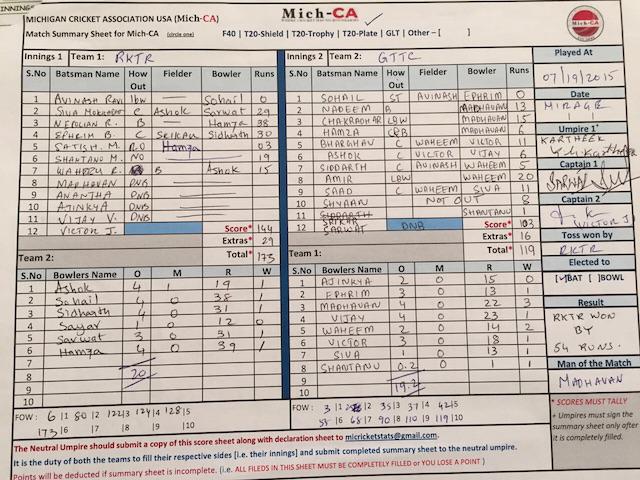 INNINGS)
MICHIGAN CRICKET ASSOCIATION USA (Mich-CA)
Match Summary Sheet for Mich-CA (circle one)
Mich-CA
F40 | T20-Shield | T20-Trophy | T20-Plate | GLT | Other – [ ]
Innings 1 Team 1: RKTR
S.No Batsman Name How Out Fielder Bowler Runs
1 AVINASH RAVI lbw Sohail 0
2 C Ashok Sarwat 29
3 B Hamza 38
4 EPHRIM B. C Sidhath 30
5 SATISH. M. R.O Hamza 03
6 SHANTANU M. NO 19
7 B Ashok 15
8 MADHAVAN DNB
9 ANANTHA DNB
10 AJINKYA DNB
11 VIJAY V. DNB
12 VICTOR J. Score* 144
Extras* 29
Total* 173
Team 2:
S.No Bowlers Name O M R W
1 Ashok 4 1 19 1
2 Sohail 4 0 38 1
3 Sidhath 4 0 31 1
4 Sagar 1 0 12 0
5 Sarwat 3 0 31 1
6 Hamza 4 0 39 1
7
8 20
9
10
FOW: 6|1 80|2 122|3 124|4 128|5
173|6 |7 |8 |9 |10
Innings 2 Team 2: GTTC
S.No Batsman Name How Out Fielder Bowler Runs
1 SOHAIL ST AVINASH EPHRIM 0
2 NADEEM B MADHAVAN 13
3 CHAKRADHAR LBW MADHAVAN 15
4 HAMZA C&B MADHAVAN 6
5 BHARGHAV C WAHEEM VICTOR 11
6 ASHOK C VICTOR VIJAY 6
7 SIDDARTH C AVINASH WAHEEM 5
8 AMIR LBW WAHEEM 20
9 SAAD C WAHEEM SIVA 11
10 SHYAAN NOT OUT 8
11 SIDDARTH SHANTANU 1
12 SARWAT DNB Score* 103
Extras* 16
Total* 119
Team 1:
S.No Bowlers Name O M R W
1 AJINKYA 2 0 15 0
2 EPHRIM 3 0 13 1
3 MADHAVAN 4 0 22 3
4 VIJAY 4 0 23 1
5 WAHEEM 2 0 14 2
6 VICTOR 3 0 18 1
7 SIVA 1 0 13 1
8 SHANTANU 0.2 0 1 1
9 19.2
10
FOW: 3|1 |2 35|3 37|4 42|5
58|6 68|7 90|8 110|9 119|10
Played At
07/19/2015
Date
MIRAGE
Umpire 1*
KARTHEEK
Captain 1
Captain 2
VICTOR J
Toss won by
RKTR
Elected to
[✓]BAT [ ]BOWL
Result
RKTR WON
BY
54 RUNS.
Man of the Match
MADHAVAN
* SCORES MUST TALLY
+ Umpires must sign the
summary sheet only after
it is completely filled.
The Neutral Umpire should submit a copy of this score sheet along with declaration sheet to micricketstats@gmail.com.
It is the duty of both the teams to fill their respective sides [i.e. their innings] and submit completed summary sheet to the neutral umpire.
Points will be deducted if summary sheet is incomplete. (i.e. ALL FILEDS IN THIS SHEET MUST BE COMPLETELY FILLED or YOU LOSE A POINT )